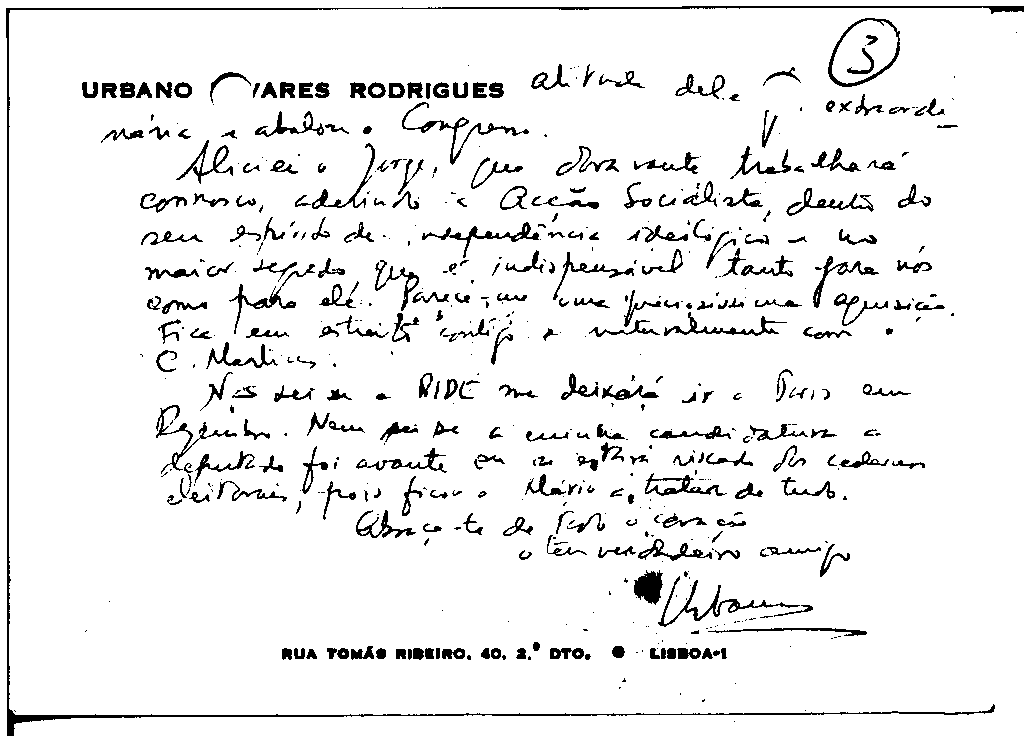 3
URBANO VARES RODRIGUES atitude dele extraordi-
nária e abalou o Congresso.
Aliciei o Jorge, que doravante trabalhará
connosco, aderindo à Acção Socialista, dentro do
seu espírito de independência ideológica e no
maior segredo, que é indispensável tanto para nós
como para ele. Parece-me uma preciosíssima aquisição.
Fica em estreito contigo e naturalmente com o
C. Martins.
Não sei se a PIDE me deixará ir a Paris em
Dezembro. Nem sei se a minha candidatura a
deputado foi avante ou se estará riscado dos cadernos
eleitorais, pois ficou o Mário a tratar de tudo.
Abraça-te de todo o coração
o teu verdadeiro amigo
Urbano
RUA TOMÁS RIBEIRO, 40, 2.º DTO. ● LISBOA-1